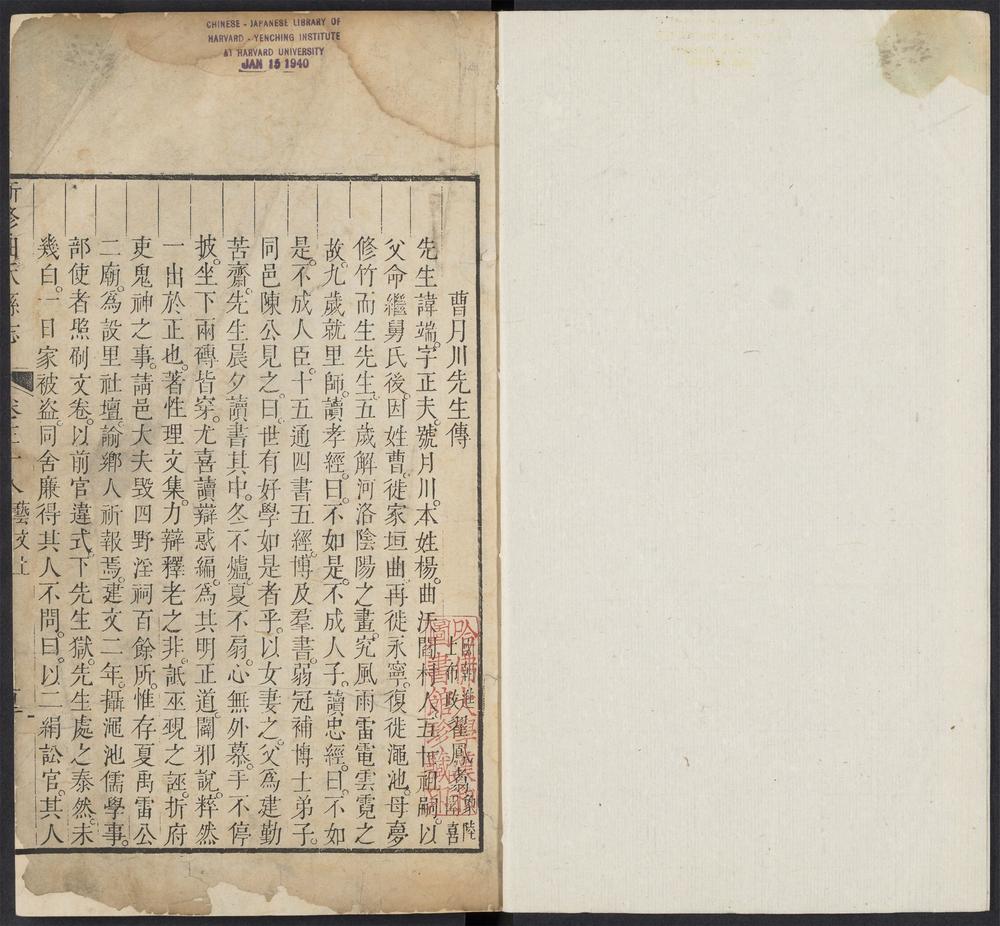 CHINESE - JAPANESE LIBRARY OF
HARVARD - YENCHING INSTITUTE
AT HARVARD UNIVERSITY
JAN 15 1940
曹月川先生傳
先生諱端。字正夫。號月川。本姓楊。曲沃閻村人。五世祖嗣。以
父命繼舅氏後。因姓曹。徙家垣曲。再徙永寧。復徙澠池。母夢
修竹而生先生。五歲解河洛陰陽之畫。究風雨雷電雲霓之
故。九歲就里師。讀孝經。曰。不如是。不成人子。讀忠經。曰。不如
是。不成人臣。十五通四書五經。博及羣書。弱冠補博士弟子。
同邑陳公見之。曰。世有好學如是者乎。以女妻之。父爲建勤
苦齋。先生晨夕讀書其中。冬不爐。夏不扇。心無外慕。手不停
披。坐下兩磚皆穿。尤喜讀辯惑編。爲其明正道。闢邪說。粹然
一出於正也。著性理文集。力辯釋老之非。詆巫覡之誣。折府
吏鬼神之事。請邑大夫毀四野淫祠百餘所。惟存夏禹雷公
二廟。爲設里社壇。諭鄉人祈報焉。建文二年。攝澠池儒學事。
部使者照刷文卷。以前官違式。下先生獄。先生處之泰然。未
幾白。一日家被盜。同舍廉得其人不問。曰。以二絹訟官。其人
新修曲沃縣志
卷三十八 藝文上
哈佛大學漢和圖書館珍藏印